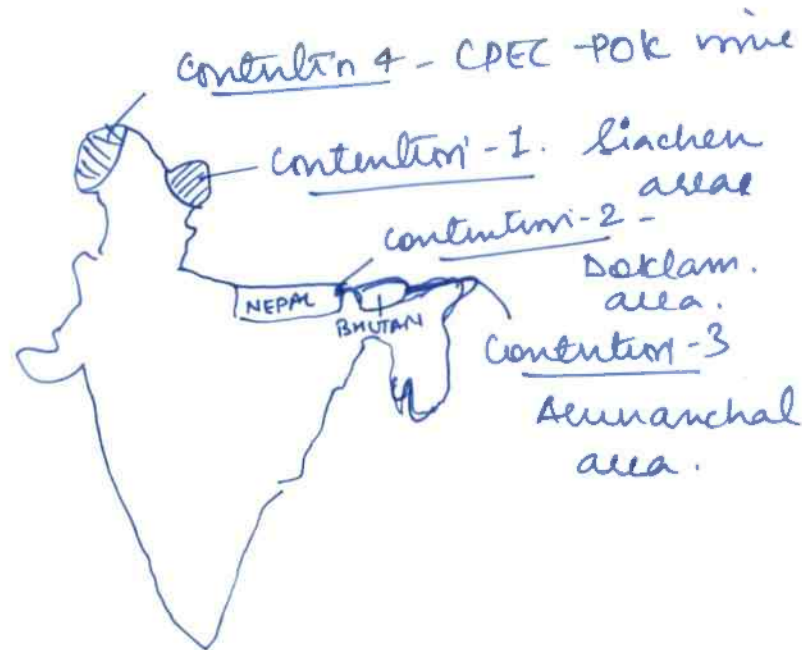 Contention 4 - CPEC - POK
Contention - 1. Siachen
area
Contention - 2 -
Doklam.
area.
NEPAL
BHUTAN
Contention - 3
Arunanchal
area.